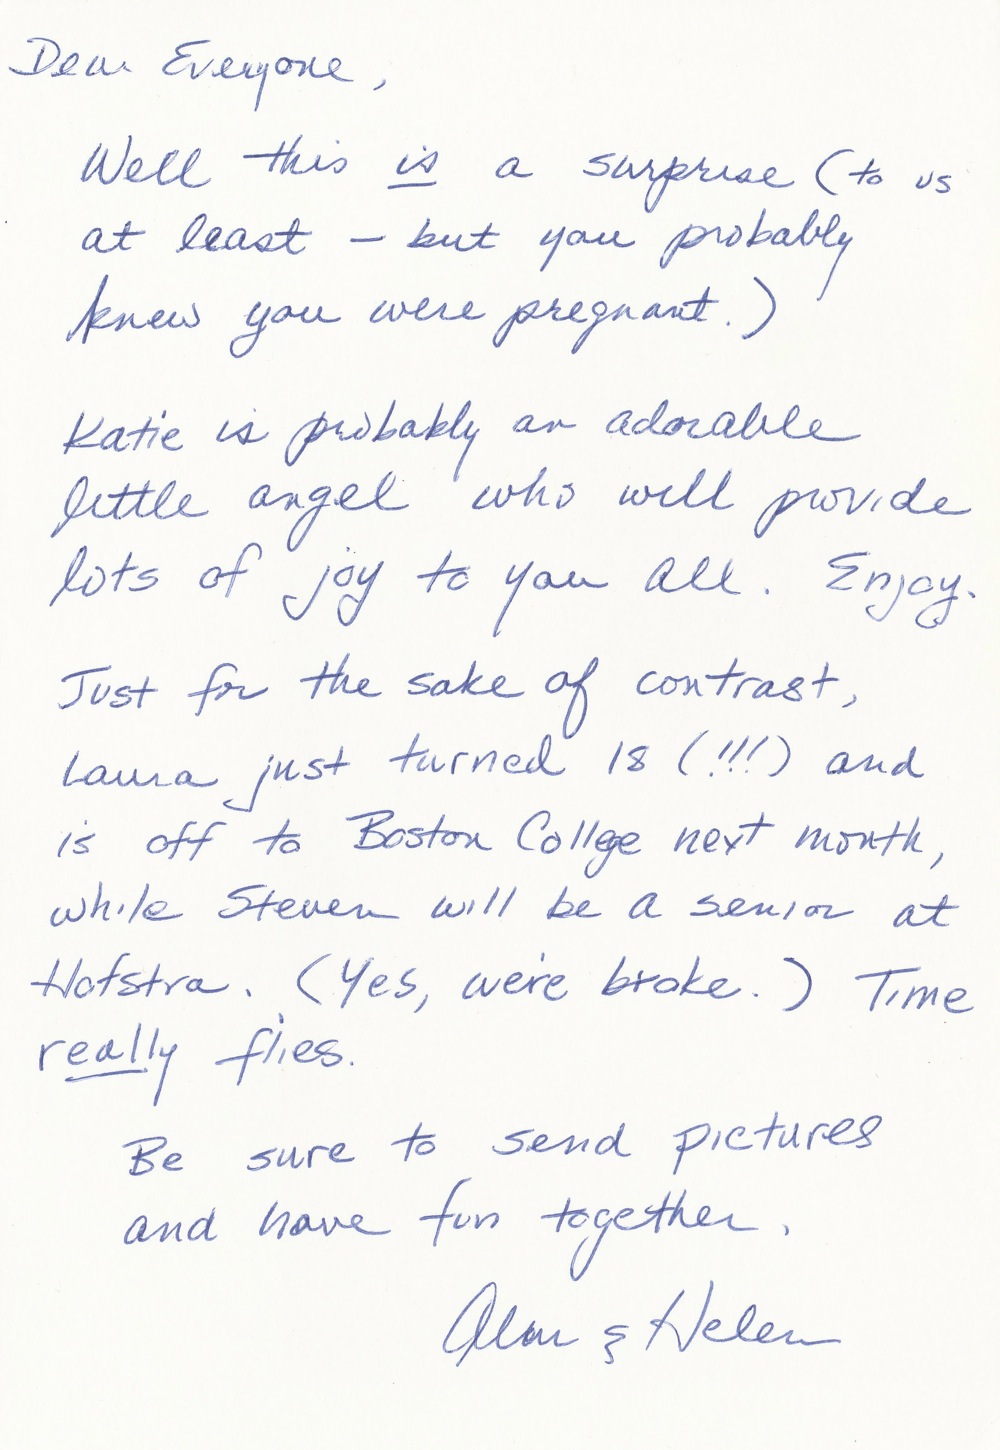 Dear Everyone,
Well this is a surprise (to us
at least – but you probably
knew you were pregnant.)
Katie is probably an adorable
little angel who will provide
lots of joy to you all. Enjoy.
Just for the sake of contrast,
Laura just turned 18 (!!!) and
is off to Boston Collge next month,
while Steven will be a senior at
Hofstra. (Yes, we're broke.) Time
really flies.
Be sure to send pictures
and have fun together.
Alan & Helen